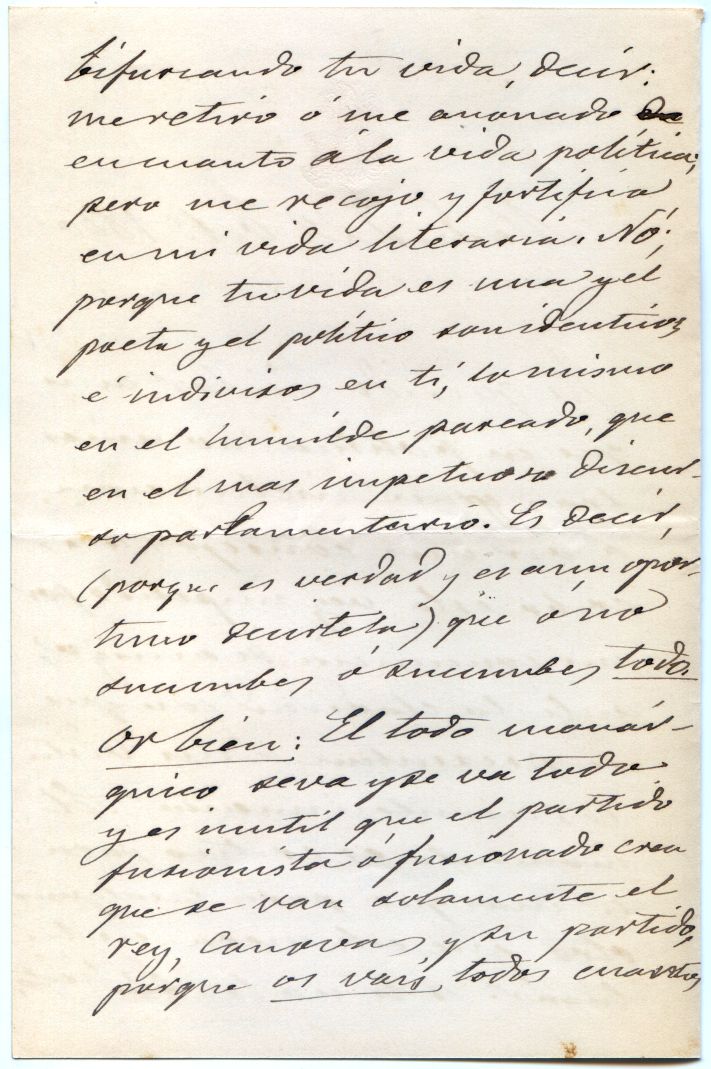 bifurcando tu vida, decir:
me retiro ó me anonado
en cuanto á la vida política;
pero me recojo y fortifico
en mi vida literaria. Nó;
porque tu vida es una y el
poeta y el político son identicos
é indivisos en tí, lo mismo
en el humilde pareado, que
en el mas impetuoso discur-
so parlamentario. Es decir,
(porque es verdad y es aun opor-
tuno decirtela) que ó no
sucumbes ó sucumbes todo.
Or bien: El todo monár-
quico se va y se va todo
y es inutil que el partido
fusionista ó fusionado crea
que se van solamente el
rey, Canovas y su partido,
pórque os vais todos cuantos